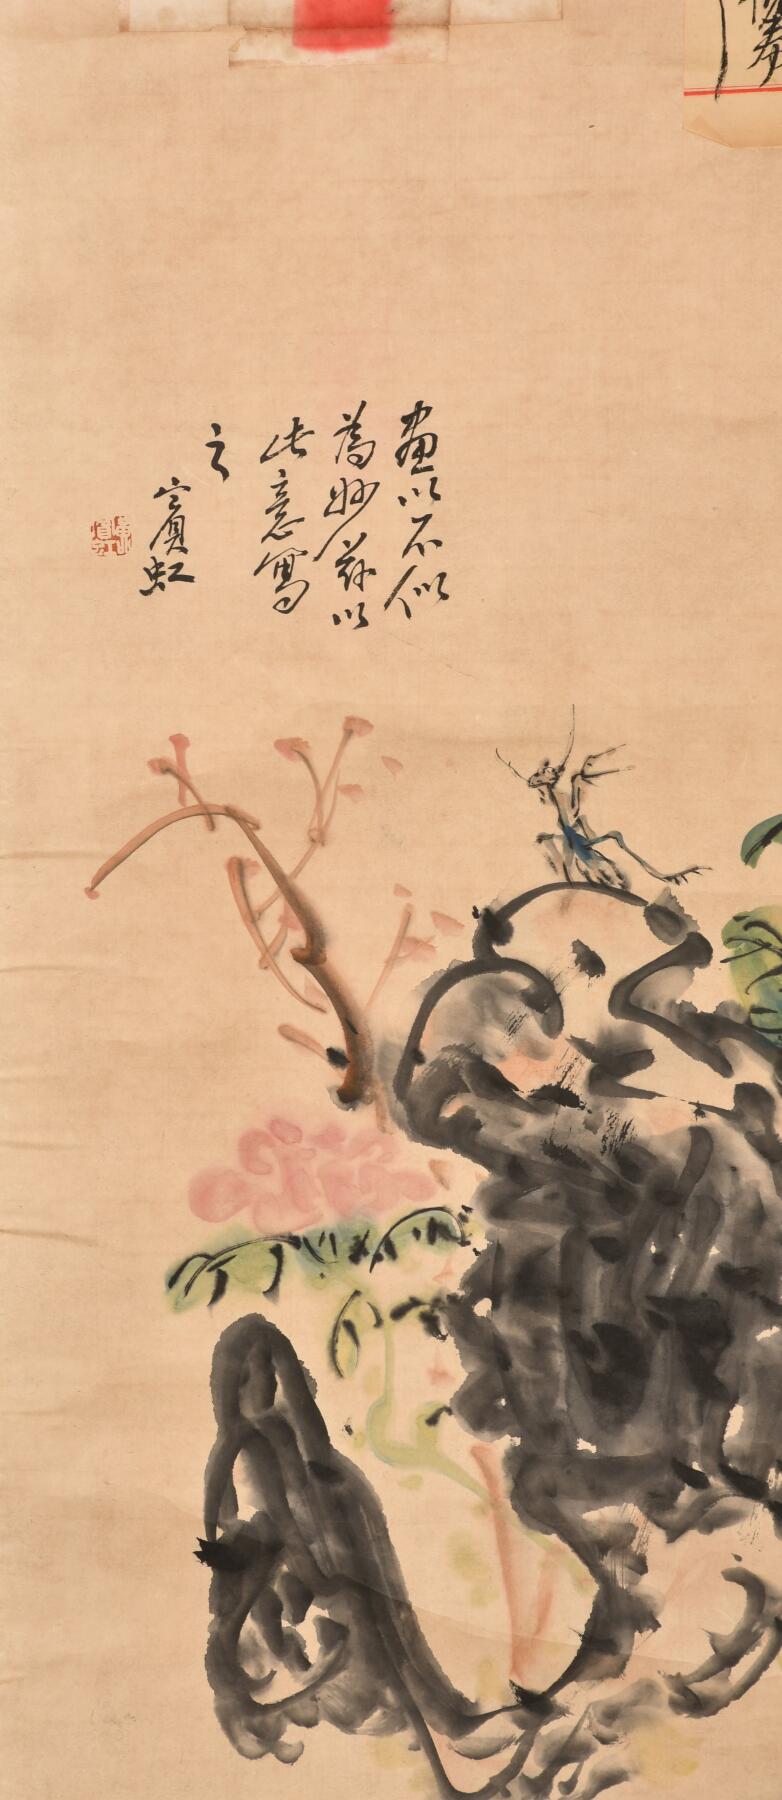 畫以不似
為妙茲以
此意寫
之
賓虹